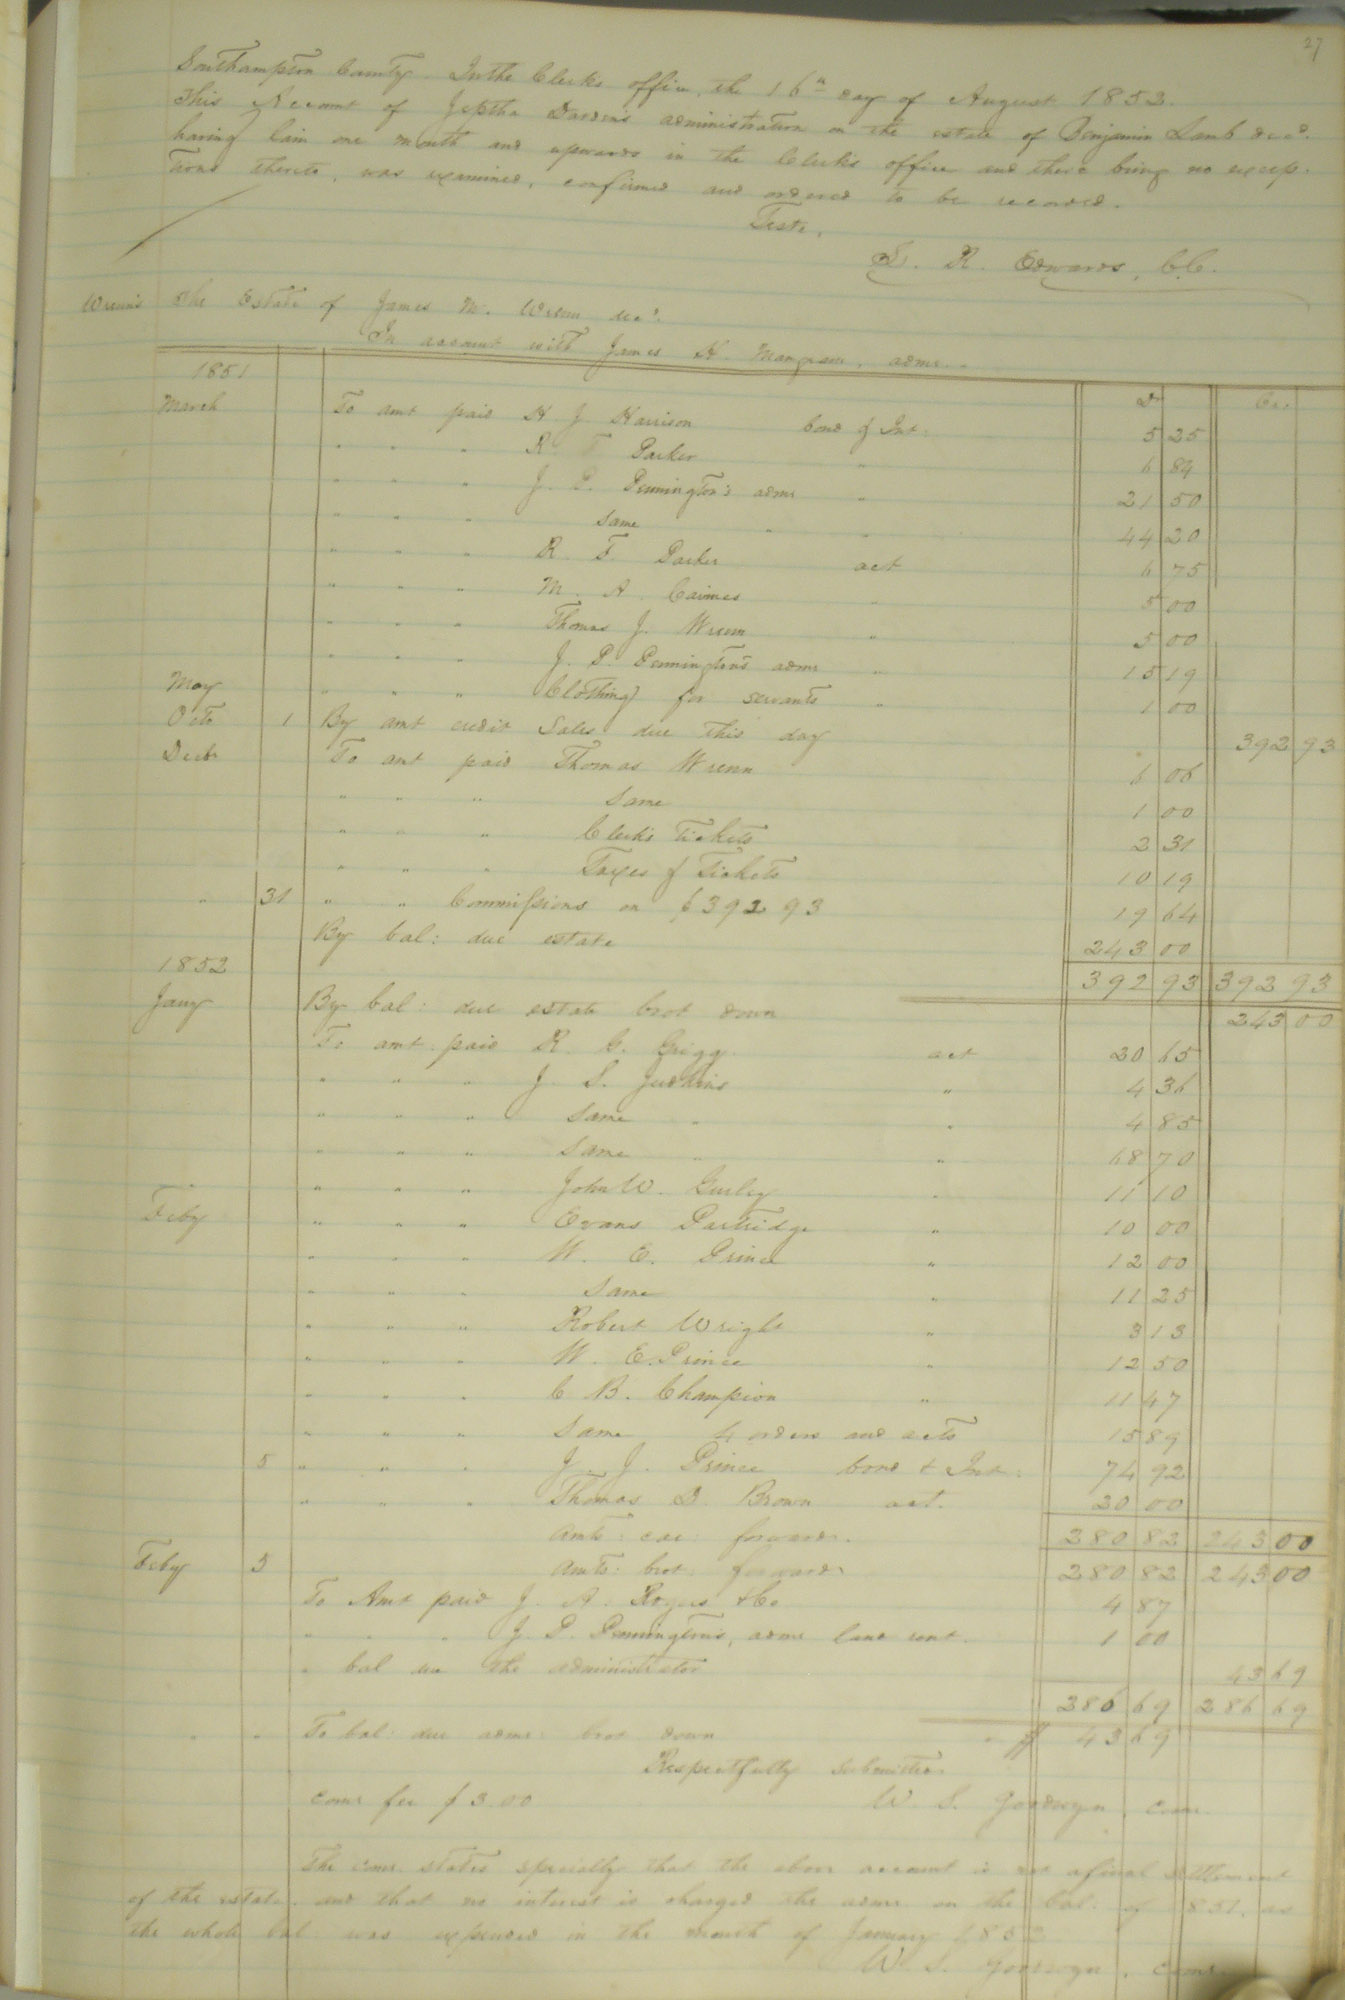 27
Southampton County. In the Clerks office, the 16th day of August 1852.
This Account of Jeptha Darden's administration on the estate of Benjamin Lamb decd.
having lain one month and upwards in the Clerk's office and there being no excep-
tions thereto, was examined, confirmed and ordered to be recorded.
Teste,
L. R. Edwards, C.C.
Wrenn's The Estate of James M. Wrenn decd.
In account with James H. Mangram, admr.
1851 Dr Cr.
March To amt paid H J Harrison bond & Int: 5 25
" " " R. F Parker " 6 84
" " " J. P. Pennington's admr " 21 50
" " " same " " 44 20
" " " R. F. Parker act 6 75
" " " M. A. Caimes " 5 00
" " " Thomas J. Wrenn " 5 00
" " " J. P. Pennington's admr " 15 19
May " " " Clothing for servants " 1 00
Octo 1 By amt credit Sales due this day 392 93
Decbr To amt paid Thomas Wrenn 6 06
" " " same 1 00
" " " Clerk's Tickets 2 31
" " " Taxes & Tickets 10 19
" 31 " " Commissions on $392 93 19 64
By bal: due estate 243 00
1852 392 93 392 93
Jany By bal: due estate brot down 243 00
To amt. paid R. G. Grigg act 20 65
" " " J. S. Judkins " 4 36
" " " same " " 4 85
" " " same " " 68 70
" " " John W. Gurley " 11 10
Feby " " " Evans Partridge " 10 00
" " " W. E. Prince " 12 00
" " " same " 11 25
" " " Robert Wright " 3 13
" " " W. E. Prince " 12 50
" " " C B. Champion " 11 47
" " " same 4 orders and acts 15 89
5 " " " J. J. Prince bond & Int: 74 92
" " " Thomas D. Brown act. 20 00
Amts: car: forward. 280 82 243 00
Feby 5 Amts: brot: forward 280 82 243 00
To Amt paid J. A. Rogers & Co 4 87
" " " J. P. Pennington's, admr land rent. 1 00
" bal due the administrator 43 69
286 69 286 69
" " To bal: due admr: brot down " $ 43 69
Respectfully submitted
Comr fee $3.00 W. S. Goodwyn, Comr.
The comr. states specially that the above account is not a final settlement
of the estate. and that no interest is charged the admr on the bal. of 1851, as
the whole bal was expended in the month of January 1852
W. S. Goodwyn, Comr.